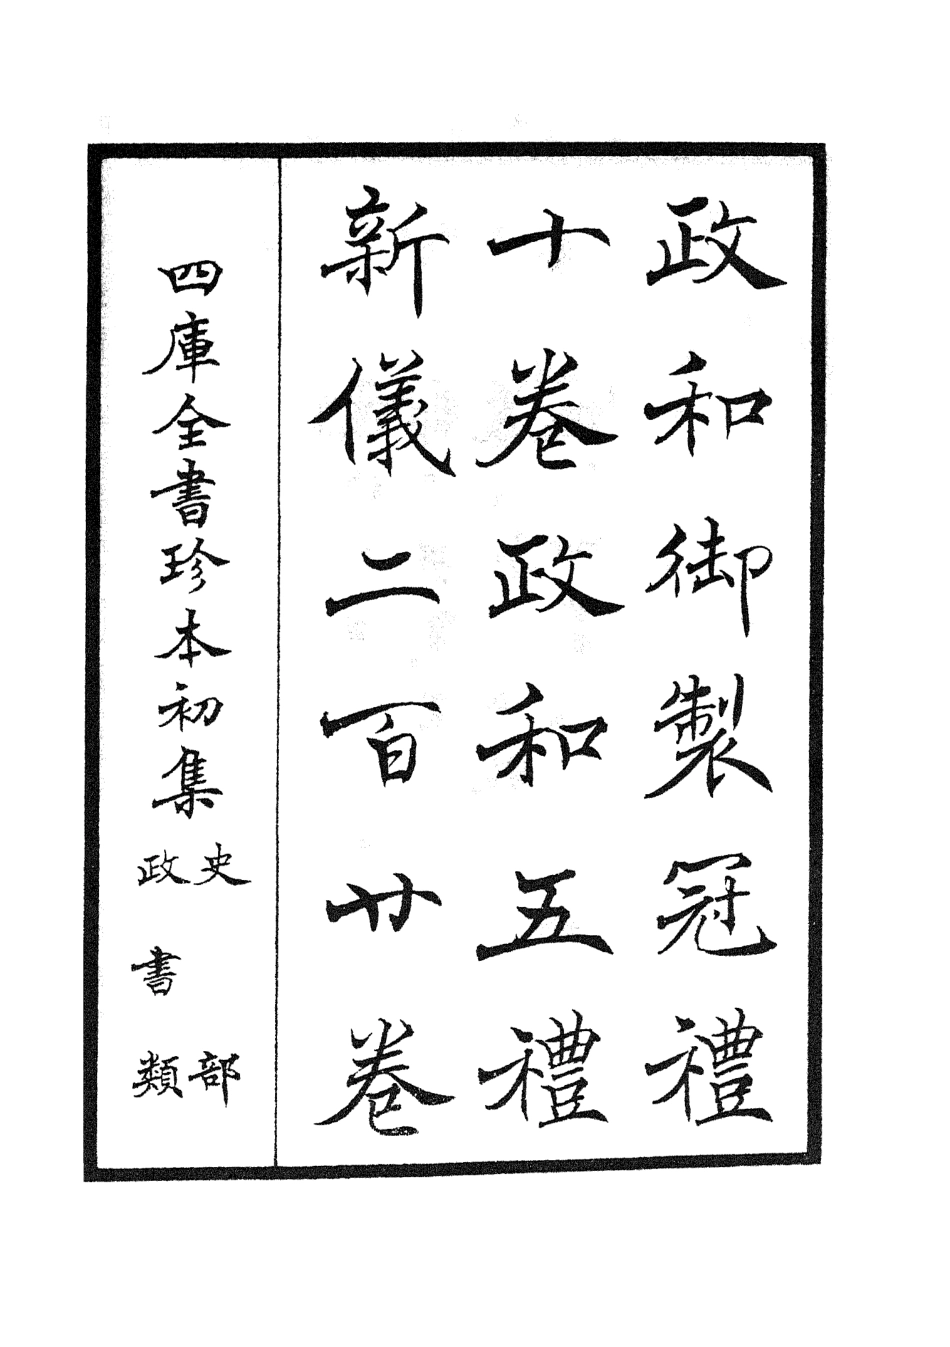 政和御製冠禮
十卷政和五禮
新儀二百廿卷
四庫全書珍本初集
史部
政書類